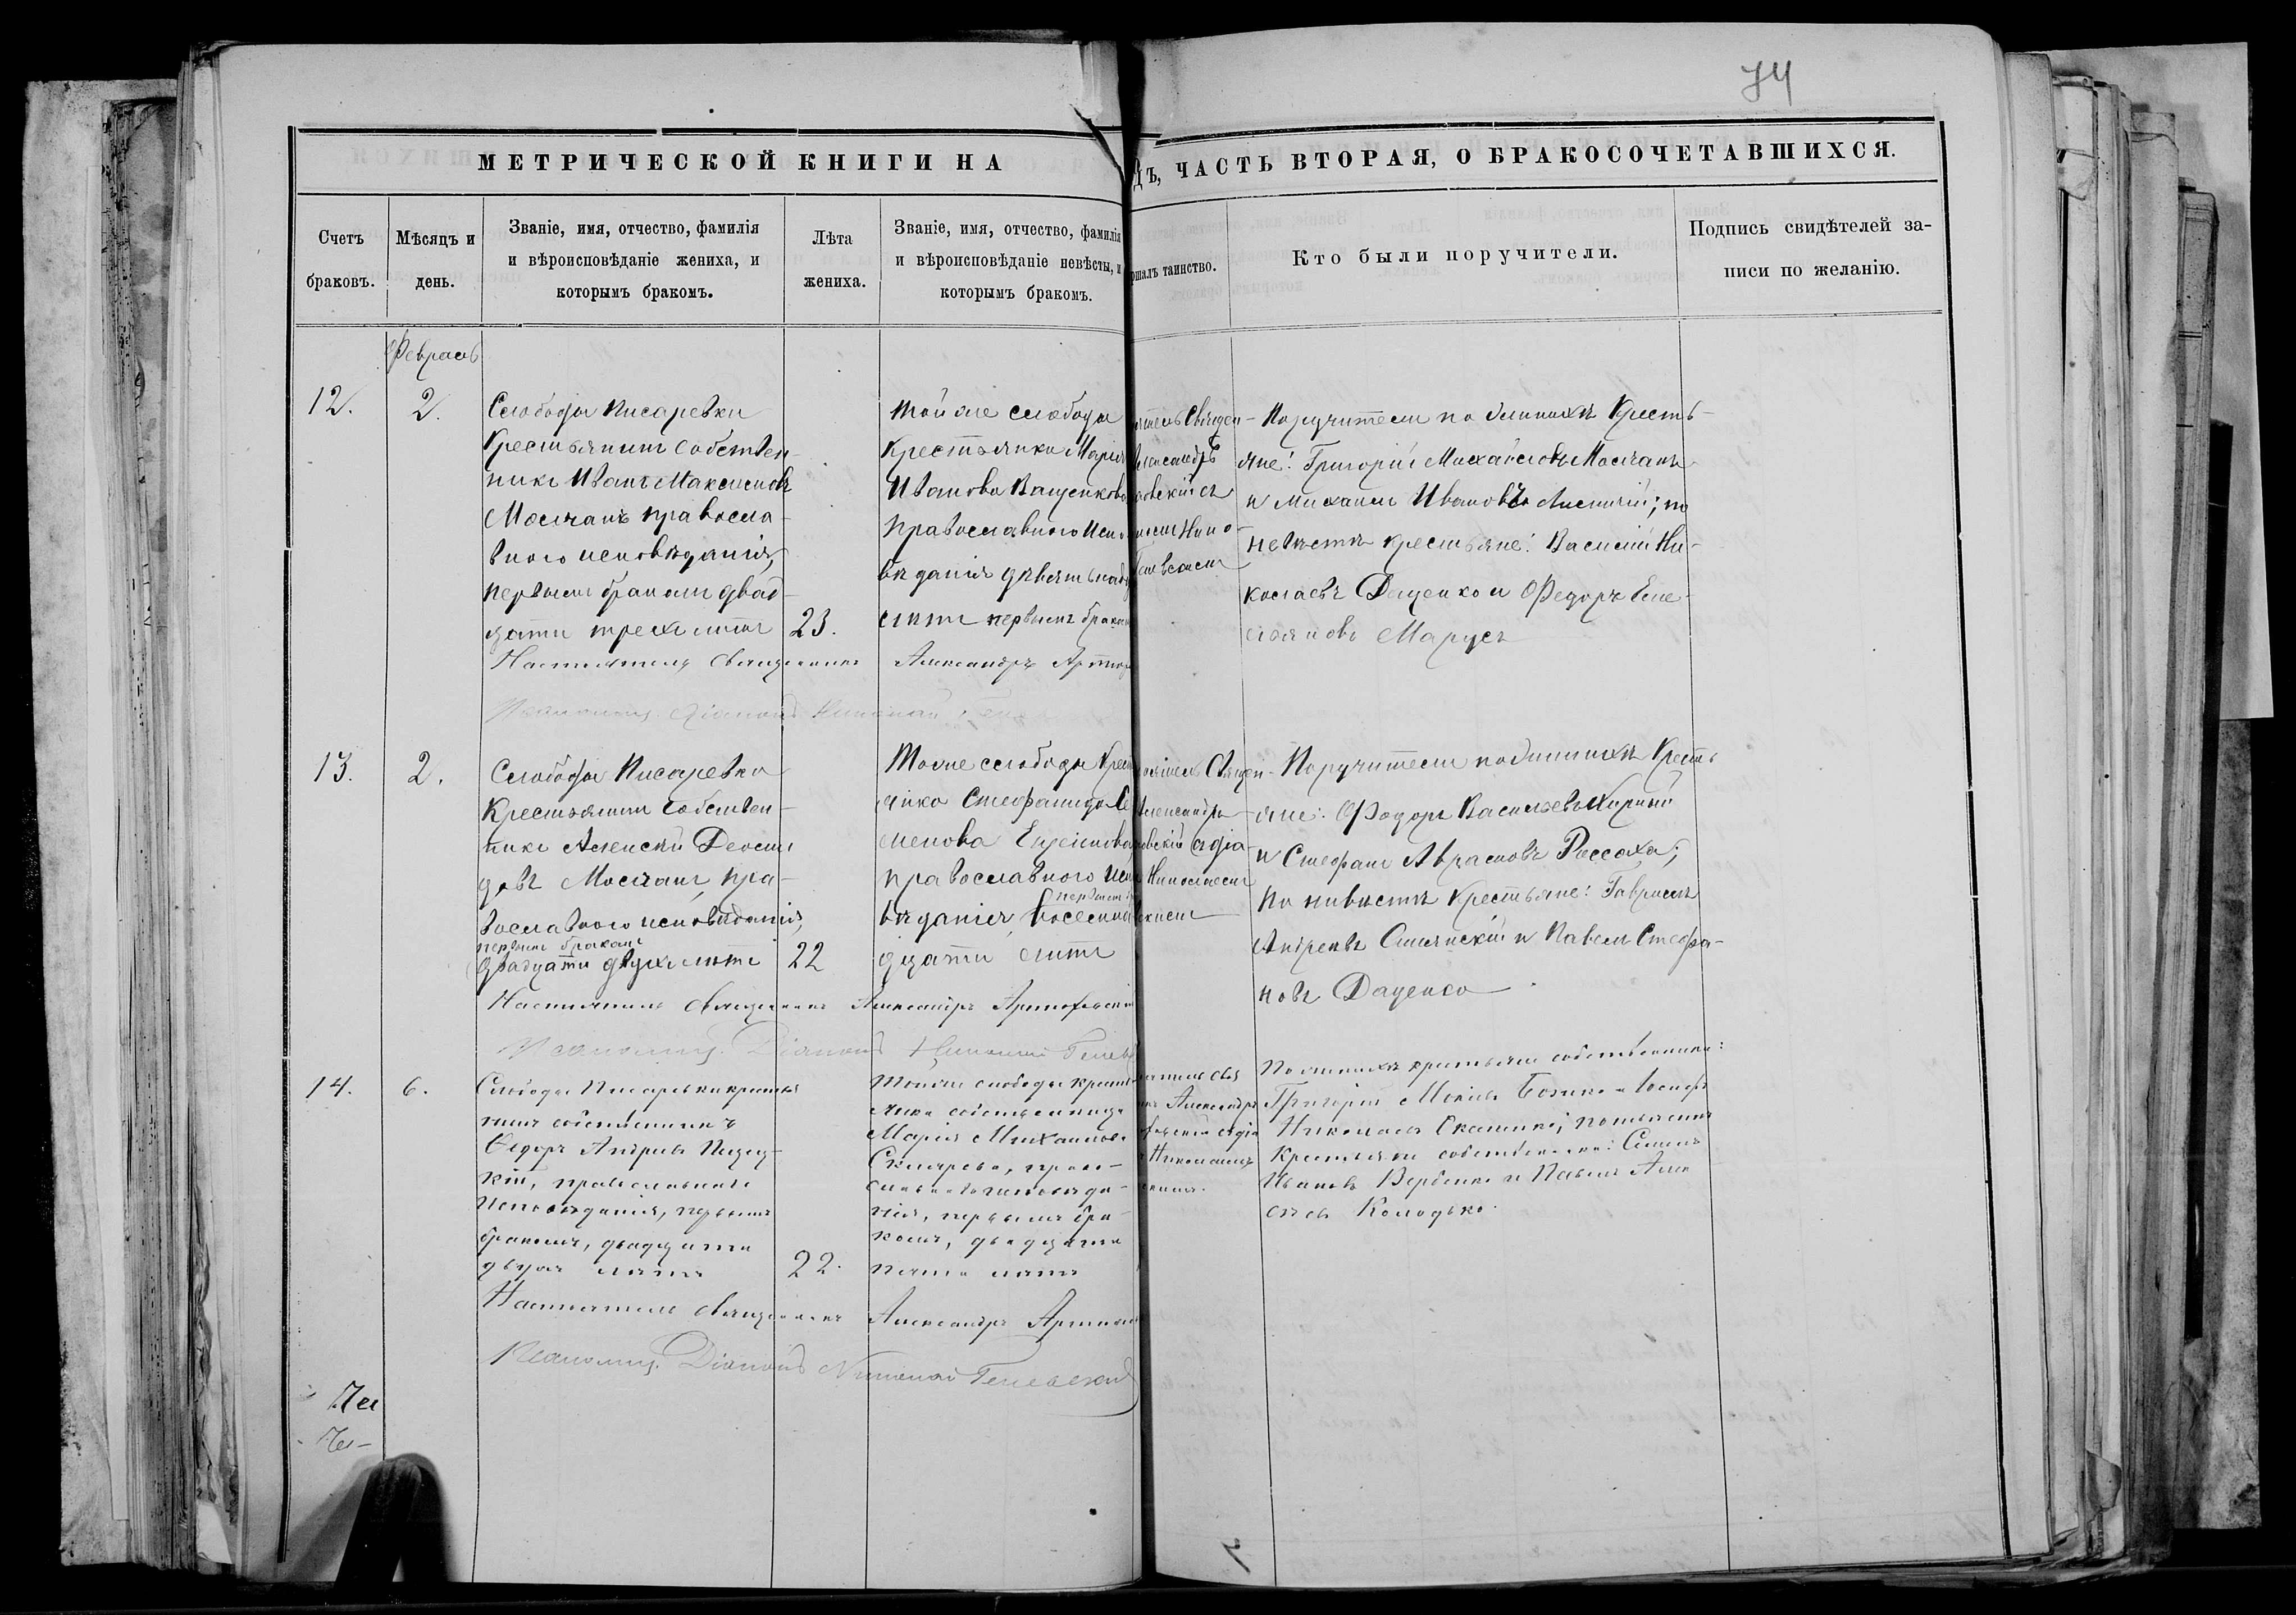 74
МЕТРИЧЕСКОЙ КНИГИ НА
ДЪ, ЧАСТЬ ВТОРАЯ, О БРАКОСОЧЕТАВШИХСЯ.
Счетъ
браковъ.
Мѣсяцъ и
день.
Званіе, имя, отчество, фамилія
и вѣроисповѣданіе жениха, и
которымъ бракомъ.
Лѣта
жениха.
Званіе, имя, отчество, фамилія
и вѣроисповѣданіе невѣсты, и
которымъ бракомъ.
ршалъ таинство.
Кто были поручители.
Подпись свидѣтелей за-
писи по желанію.
Февраль
12.
2.
Слободы Писаревки
Крестьянинъ собствен-
никъ Иванъ Максимовъ
Молчанъ правосла-
внаго исповѣданія,
первымъ бракомъ двад-
цати трехъ лѣтъ
23.
Той же слободы
Крестьянка Марія
Иванова Ващенкова
православнаго испо-
вѣданія девятьнадц
лѣтъ первымъ бракомъ
ятель Священ-
Александръ
овскій съ
Нико-
Поручители по женихѣ Кресть-
яне: Григорій Михайловъ Молчанъ
и Михаилъ Ивановъ; по
невѣстѣ крестьяне: Василій Ни-
колаевъ Даценко и Федоръ Еме-
льяновъ Марусъ
Настоятель Священникъ Александръ
Псаломщ. Діаконъ Николай
13.
2.
Слободы Писаревки
Крестьянинъ собствен-
никъ Алексѣй Деоми-
довъ Молчанъ, пра-
вославнаго исповѣданія,
первымъ бракомъ
двадцати двухъ лѣтъ
22
Тойже слободы Крест
янка Стефанида Се
менова
православнаго испо
первымъ
вѣданія, восемна
дцати лѣтъ
оятель Священ-
Александръ
овскій съ діа-
Николаемъ
Поручители по женихѣ Кресть
яне: Федоръ Васильевъ
и Стефанъ Авраамовъ Россоха;
По невѣстѣ Крестьяне: Гавріилъ
Андреевъ и Павелъ Стефа-
новъ Даценко
Настоятель Священникъ Александръ Артюховскій
Псаломщ. Діаконъ Николай
14.
6.
Слободы Писаревки крестья
нинъ собственникъ
Ѳедоръ Андреевъ
кій, православнаго
исповѣданія, первымъ
бракомъ, двадцати
двухъ лѣтъ
22.
Тойже слободы крестья
янка собственница
Марія Михайлова
Склярова, право-
славнаго исповѣда-
нія, первымъ бра-
комъ, двадцати
пяти лѣтъ
ятель свя
Александръ
съ діа
Николаемъ
По женихѣ крестьяне собственники:
Григорій и Іосифъ
Николаевъ; по невѣстѣ
Крестьяне собственники: Семенъ
Ивановъ Вербенко и Павелъ Алек
Колодько.
Настоятель Священникъ Александръ
Псаломщ. Діаконъ Николай